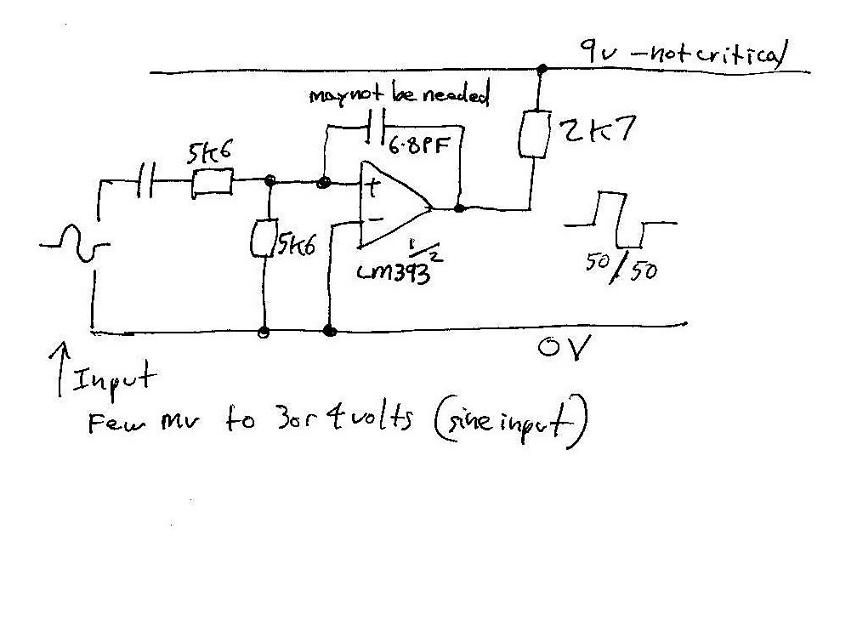 9v - not critical
may not be needed
6.8PF
2K7
5K6
+
-
5K6
1/2
LM393
50/50
0V
Input
Few mv to 3 or 4 volts (sine input)